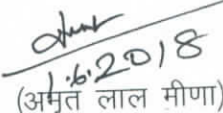 1.6.2018
(अमृत लाल मीणा)